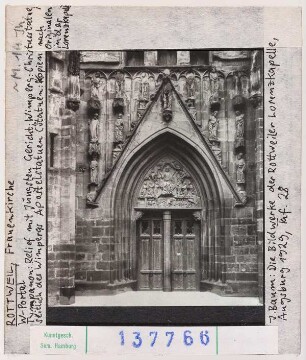 ROTTWEIL, Frauenkirche
W-Portal
Tympanon: Relief mit Jüngstem Gericht; Wimperg: Christusstatue,
seitlich des Wimpergs Apostelstatuen (Statuen: Kopien nach
Originalen
in der
Lorenzkapelle
J. Baum: Die Bildwerke der Rottweiler Lorenzkapelle,
Augsburg 1929, Taf. 28
Kunstgesch.
Sem. Hamburg
137766